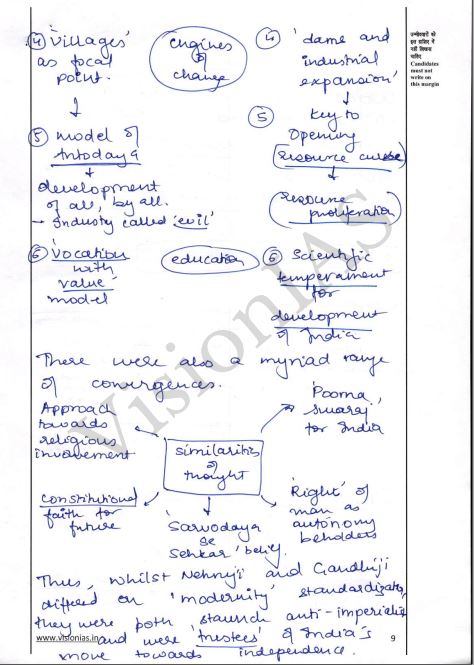 ④ 'Villages'
as focal
point.
engines
of
change
④ 'dams and
industrial
expansion'
उम्मीदवारों को
इस हाशिए में
नहीं लिखना
चाहिए
Candidates
must not
write on
this margin
⑤ model of
Antodaya
development
of all, by all.
- Industry called 'evil'
⑤ key to
opening
resource curse
resource
proliferation
⑥ 'Vocation
with
value'
model
education
⑥ Scientific
temperament
for
development
of India
There were also a myriad range
of convergences.
Approach
towards
religious
involvement
'Poorna
swaraj'
for India
similarities
of
thought
constitutional
faith for
future
'Sarvodaya
se
Sehkar' belief.
'Right' of
man as
autonomy
beholders
Thus, whilst Nehruji and Gandhiji
differed on 'modernity' standardization,
they were both staunch anti-imperialist
and were 'trustees' of India's
move towards independence.
www.visionias.in
9
VisionIAS